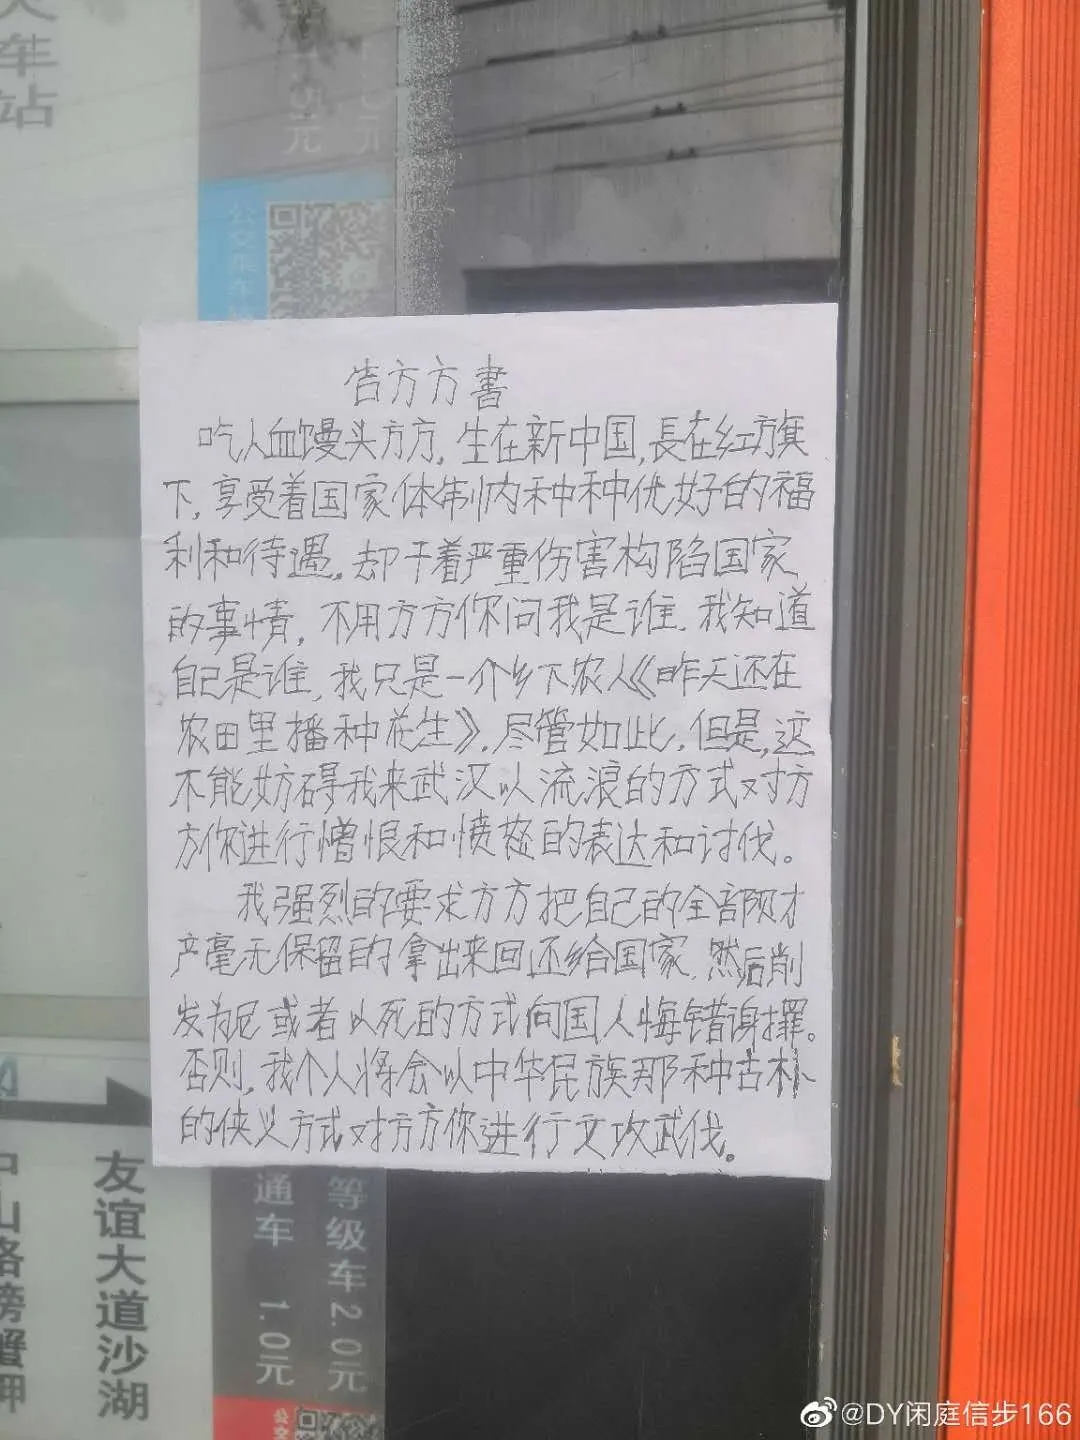 车
站
元
元
公交乘车
告方方書
吃人血馒头方方,生在新中国,長在红旗
下,享受着国家体制内种种优好的福
利和待遇,却干着严重伤害构陷国家
的事情,不用方方你问我是谁.我知道
自己是谁,我只是一个乡下农人《昨天还在
农田里播种花生》.尽管如此,但是,这
不能妨碍我来武汉以流浪的方式对方
方你进行憎恨和愤怒的表达和讨伐。
我强烈的要求方方把自己的全部财
产毫无保留的拿出来回还给国家.然后削
发为尼或者以死的方式向国人悔错谢罪。
否则,我个人将会以中华民族那种古朴
的侠义方式对方方你进行文攻武伐。
中山路螃蟹岬
友谊大道沙湖
通车 1.0元
等级车2.0元
@DY闲庭信步166